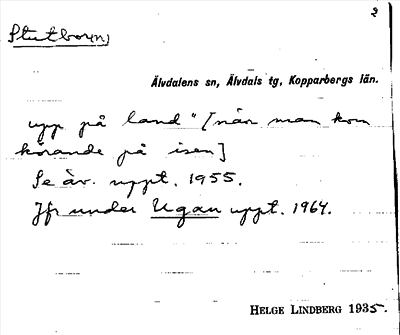 2
Stutboũn,
Älvdalens sn, Älvdals tg, Kopparbergs län.
upp på land" [när man kom
körande på isen]
Se äv. uppt. 1955.
Jfr under Ugan uppt. 1964.
HELGE LINDBERG 1935.